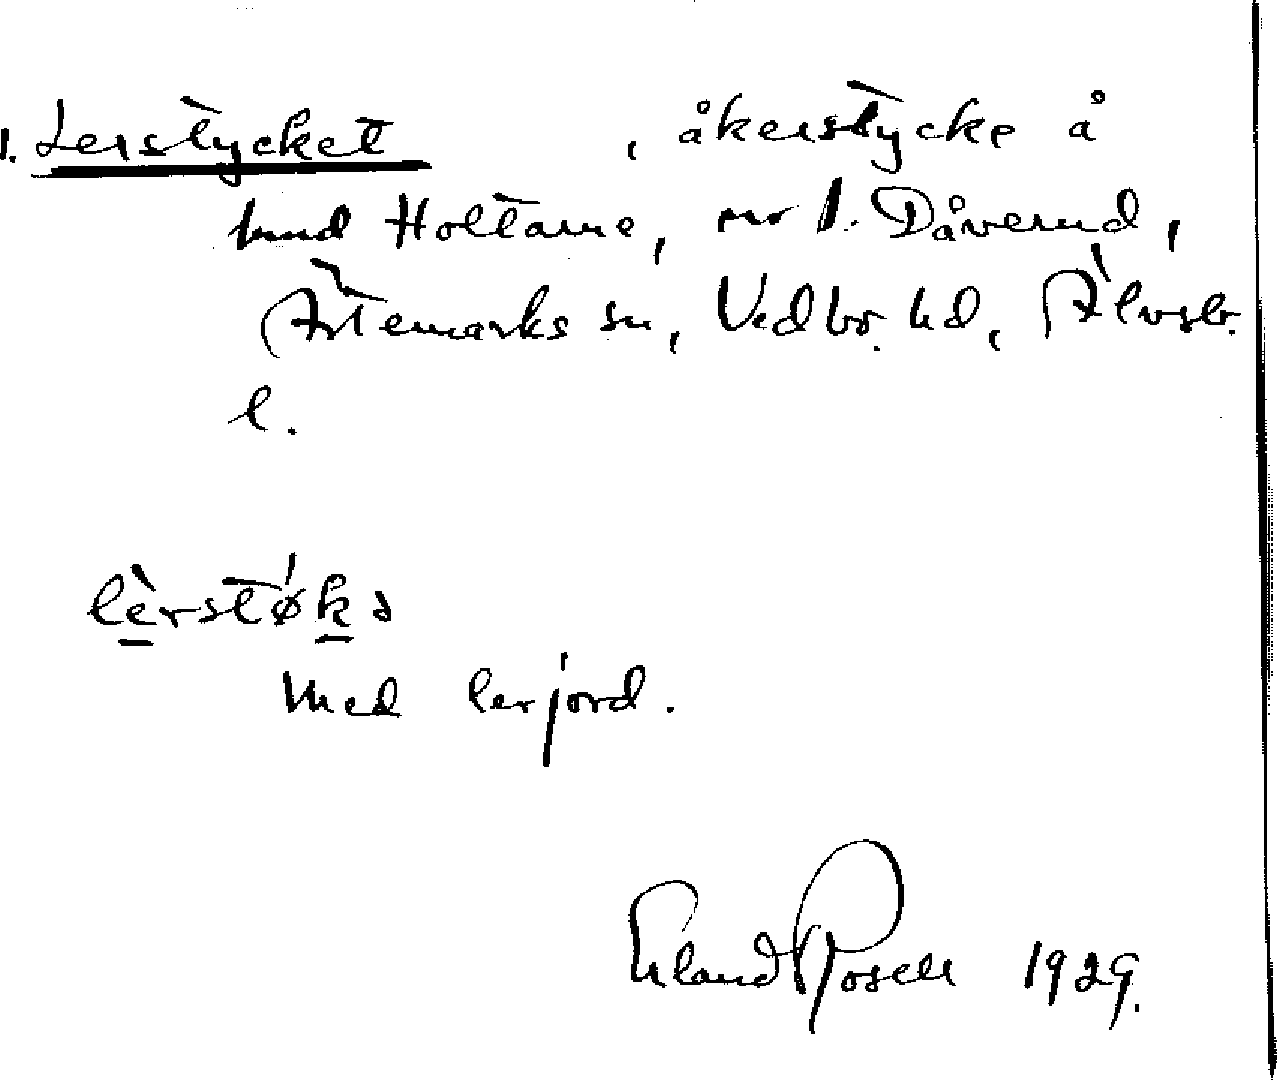 1. Lerstycket , åkerstycke å
lund Holtane, nr 1. Dåverud,
Ärtemarks sn, Vedbo hd, Älvsb.
l.
lèrstø̀kə
med lerjord.
Erland Rosell 1929.